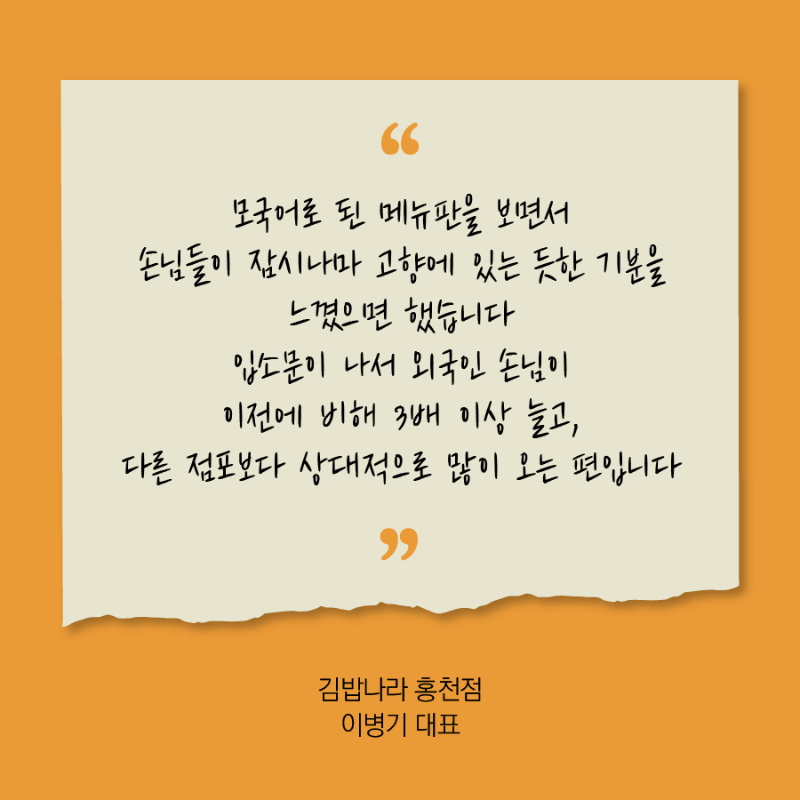 “
모국어로 된 메뉴판을 보면서
손님들이 잠시나마 고향에 있는 듯한 기분을
느꼈으면 했습니다
입소문이 나서 외국인 손님이
이전에 비해 3배 이상 늘고,
다른 점포보다 상대적으로 많이 오는 편입니다
”
김밥나라 홍천점
이병기 대표